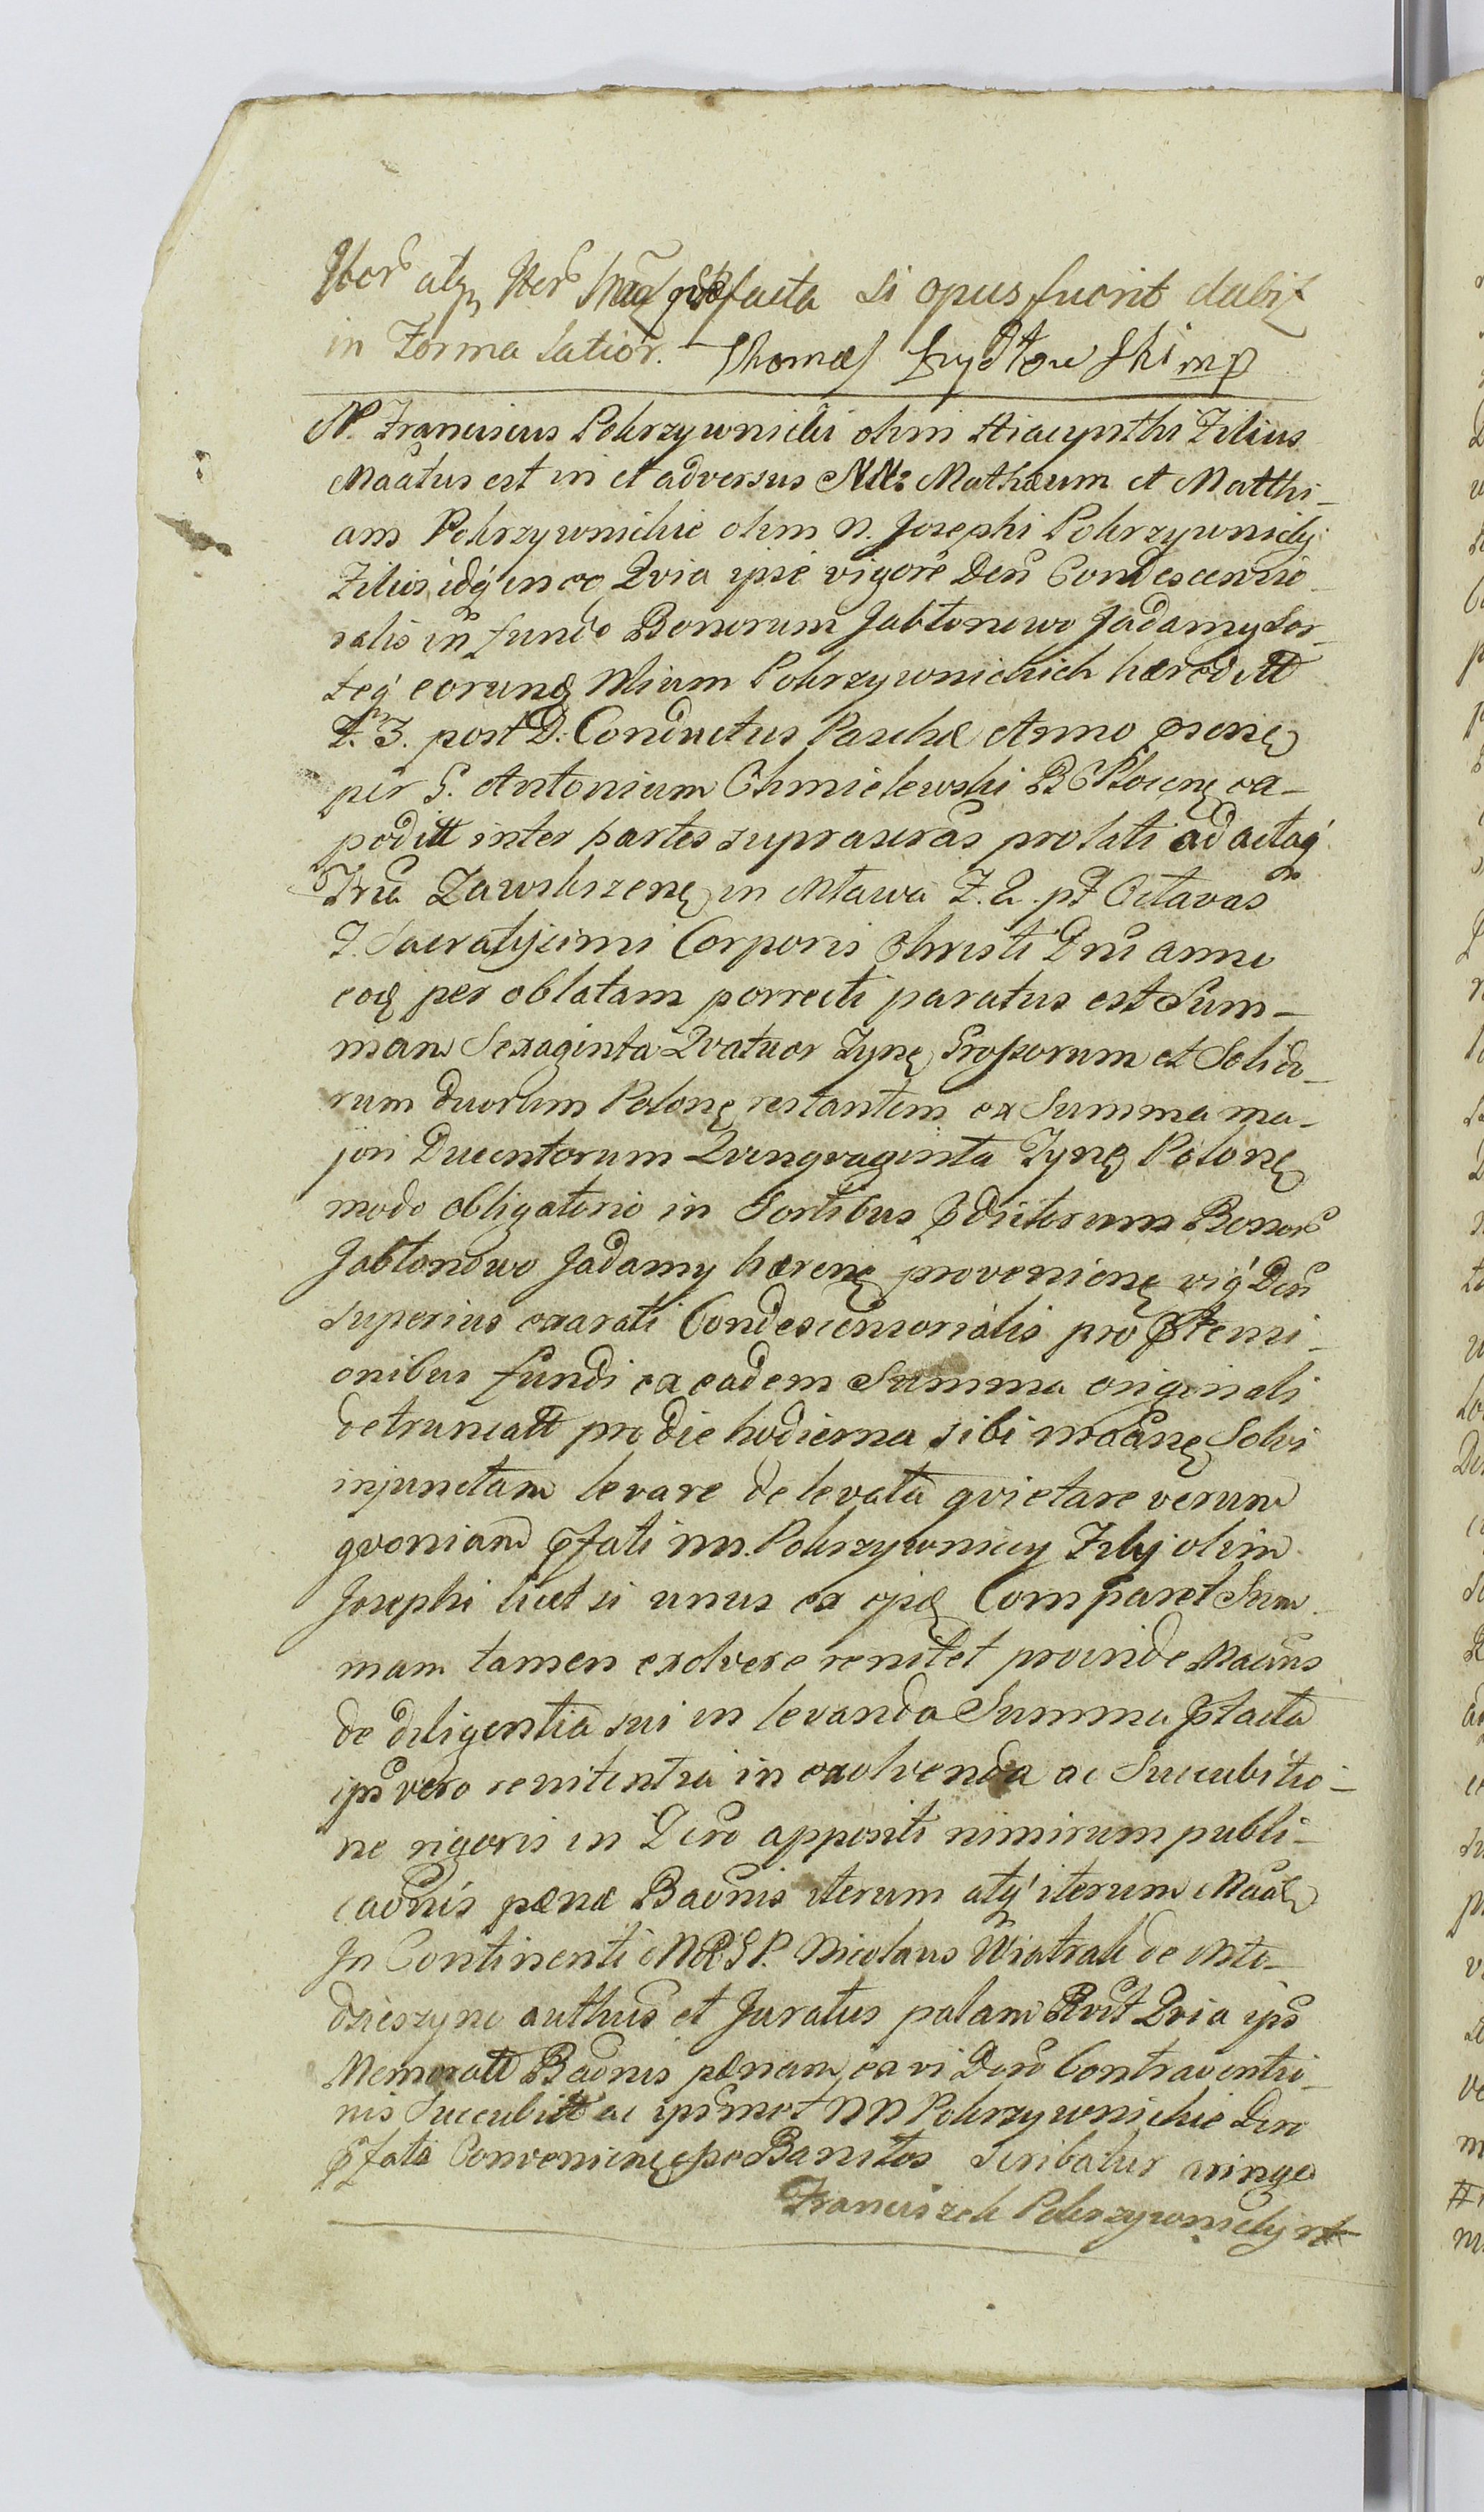 Iter atq Iter Mat pfacta si opus fuerit dabit
in Forma latior. Thomas mp
N. Franciscus Pokrzywnicki olim Hiacynthi Filius
Maatus est in et adversus NN: Mathæum et Matthi-
am Pokrzywnickie olim N. Josephi Pokrzywnicki
Filios idq in eo Qvia ipse vigore Dcri Condescensio-
ralis in fundo Bonorum Jabłonowo Jadamy Sor-
teq eorund Nlium Pokrzywnickich hæreditt
F. 3. post D: Conductus Paschæ Anno præsne
per G. Antonium Chmielewski B C Płocens ex-
peditt inter partes suprascras prolati ad actaq
Tria Zawskrzens in Mława F. 2. pt Octavas
F. Sacratissimi Corporis Christi Dni anni
eod per oblatam porrecti paratus est Sum-
mam Sexaginta Qvatuor Tyne Grossorum et Solido-
rum duorum Polone restantem ex Summa ma-
jori Ducentorum Qvinqvaginta Tyne Polone
modo obligatorio in Sortibus pdictorum Bonor
Jabłonowo Jadamy hærene proveniene vig Dcri
superius exarati Condescensorialis pro ptensi-
onibus fundi ex eadem Summa originali
detruncatt pro die hodierna sibi maane Solvi
injunctam levare de levata qvietare verum
qvoniam pfati NN. Pokrzywniccy Filij olim
Josephi licet si unus ex ipse Comparet Sum-
mam tamen exolvere renitet proinde Maans
de diligentia sui in levanda Summa ptacta
ips vero renitentia in exolvenda ac Succubitio-
ne rigoris in Dcro appositi nimirum publi-
caonis pænæ Baonis iterum atq iterum Maat
In Continenti MRGP. Nicolaus Wiatrak de Mło-
dzieszyn authus et Juratus palam Rvit Qvia ips
Memoratt Baonis pænam ex vi Dcro Contraventio-
nis Succubitt ac ipsmet NN Pokrzywnickie Dcro
pfato Conveniene pro Banitos scribatur
Franciszek Pokrzywnicky